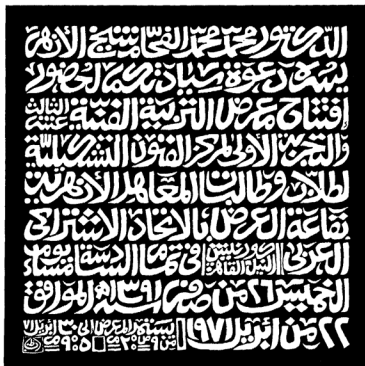 الدكتور محمد محمد الفحام شيخ الأزهر
يسره دعوة سيادتكم لحضور
افتتاح معرض التربية الفنية الثالث عشر
والتجريبى الأولى لمركز الفنون التشكيلية
لطلاب وطالبات المعاهد الأزهرية
بقاعة العرض بالاتحاد الاشتراكى
العربى كورنيش النيل القاهرة فى تمام السادسة مساء يوم
الخميس ٢٦ من صفر سنة ١٣٩١ هـ الموافق
٢٢ من أبريل ١٩٧١ يستمر المعرض الى ٣٠ أبريل ٧١